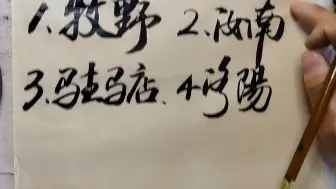 1.牧野 2.汝南
3.驻马店、4.洛陽